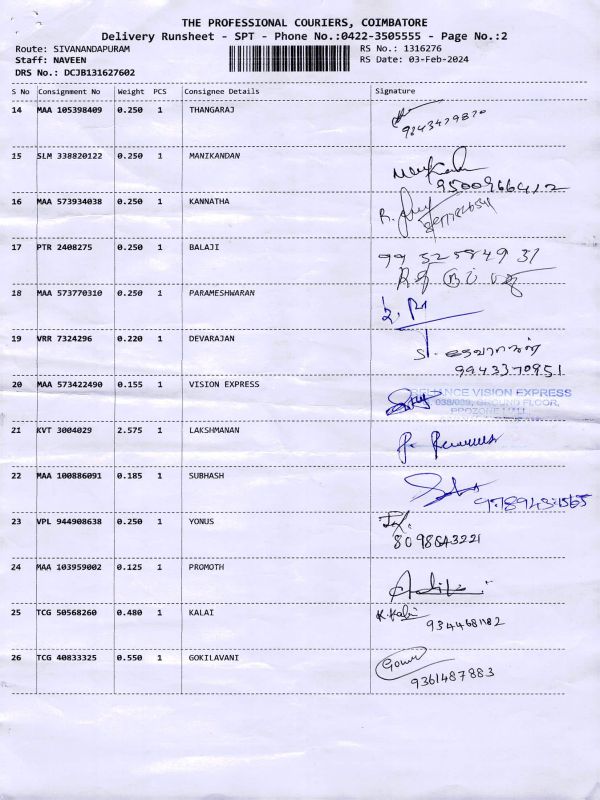 THE PROFESSIONAL COURIERS, COIMBATORE
Delivery Runsheet - SPT - Phone No.:0422-3505555 - Page No.:2
Route: SIVANANDAPURAM RS No.: 1316276
Staff: NAVEEN RS Date: 03-Feb-2024
DRS No.: DCJB131627602
S No Consignment No Weight PCS Consignee Details Signature
14 MAA 105398409 0.250 1 THANGARAJ
15 SLM 338820122 0.250 1 MANIKANDAN
9500966412
16 MAA 573934038 0.250 1 KANNATHA
17 PTR 2408275 0.250 1 BALAJI
99 52584931
18 MAA 573770310 0.250 1 PARAMESHWARAN
19 VRR 7324296 0.220 1 DEVARAJAN
9943370951
20 MAA 573422490 0.155 1 VISION EXPRESS
RELIANCE VISION EXPRESS
GROUND FLOOR,
PROZONE MALL
21 KVT 3004029 2.575 1 LAKSHMANAN
22 MAA 100886091 0.185 1 SUBHASH
23 VPL 944908638 0.250 1 YONUS
8098643221
24 MAA 103959002 0.125 1 PROMOTH
25 TCG 50568260 0.480 1 KALAI
K. Kalai
26 TCG 40833325 0.550 1 GOKILAVANI
9361487883